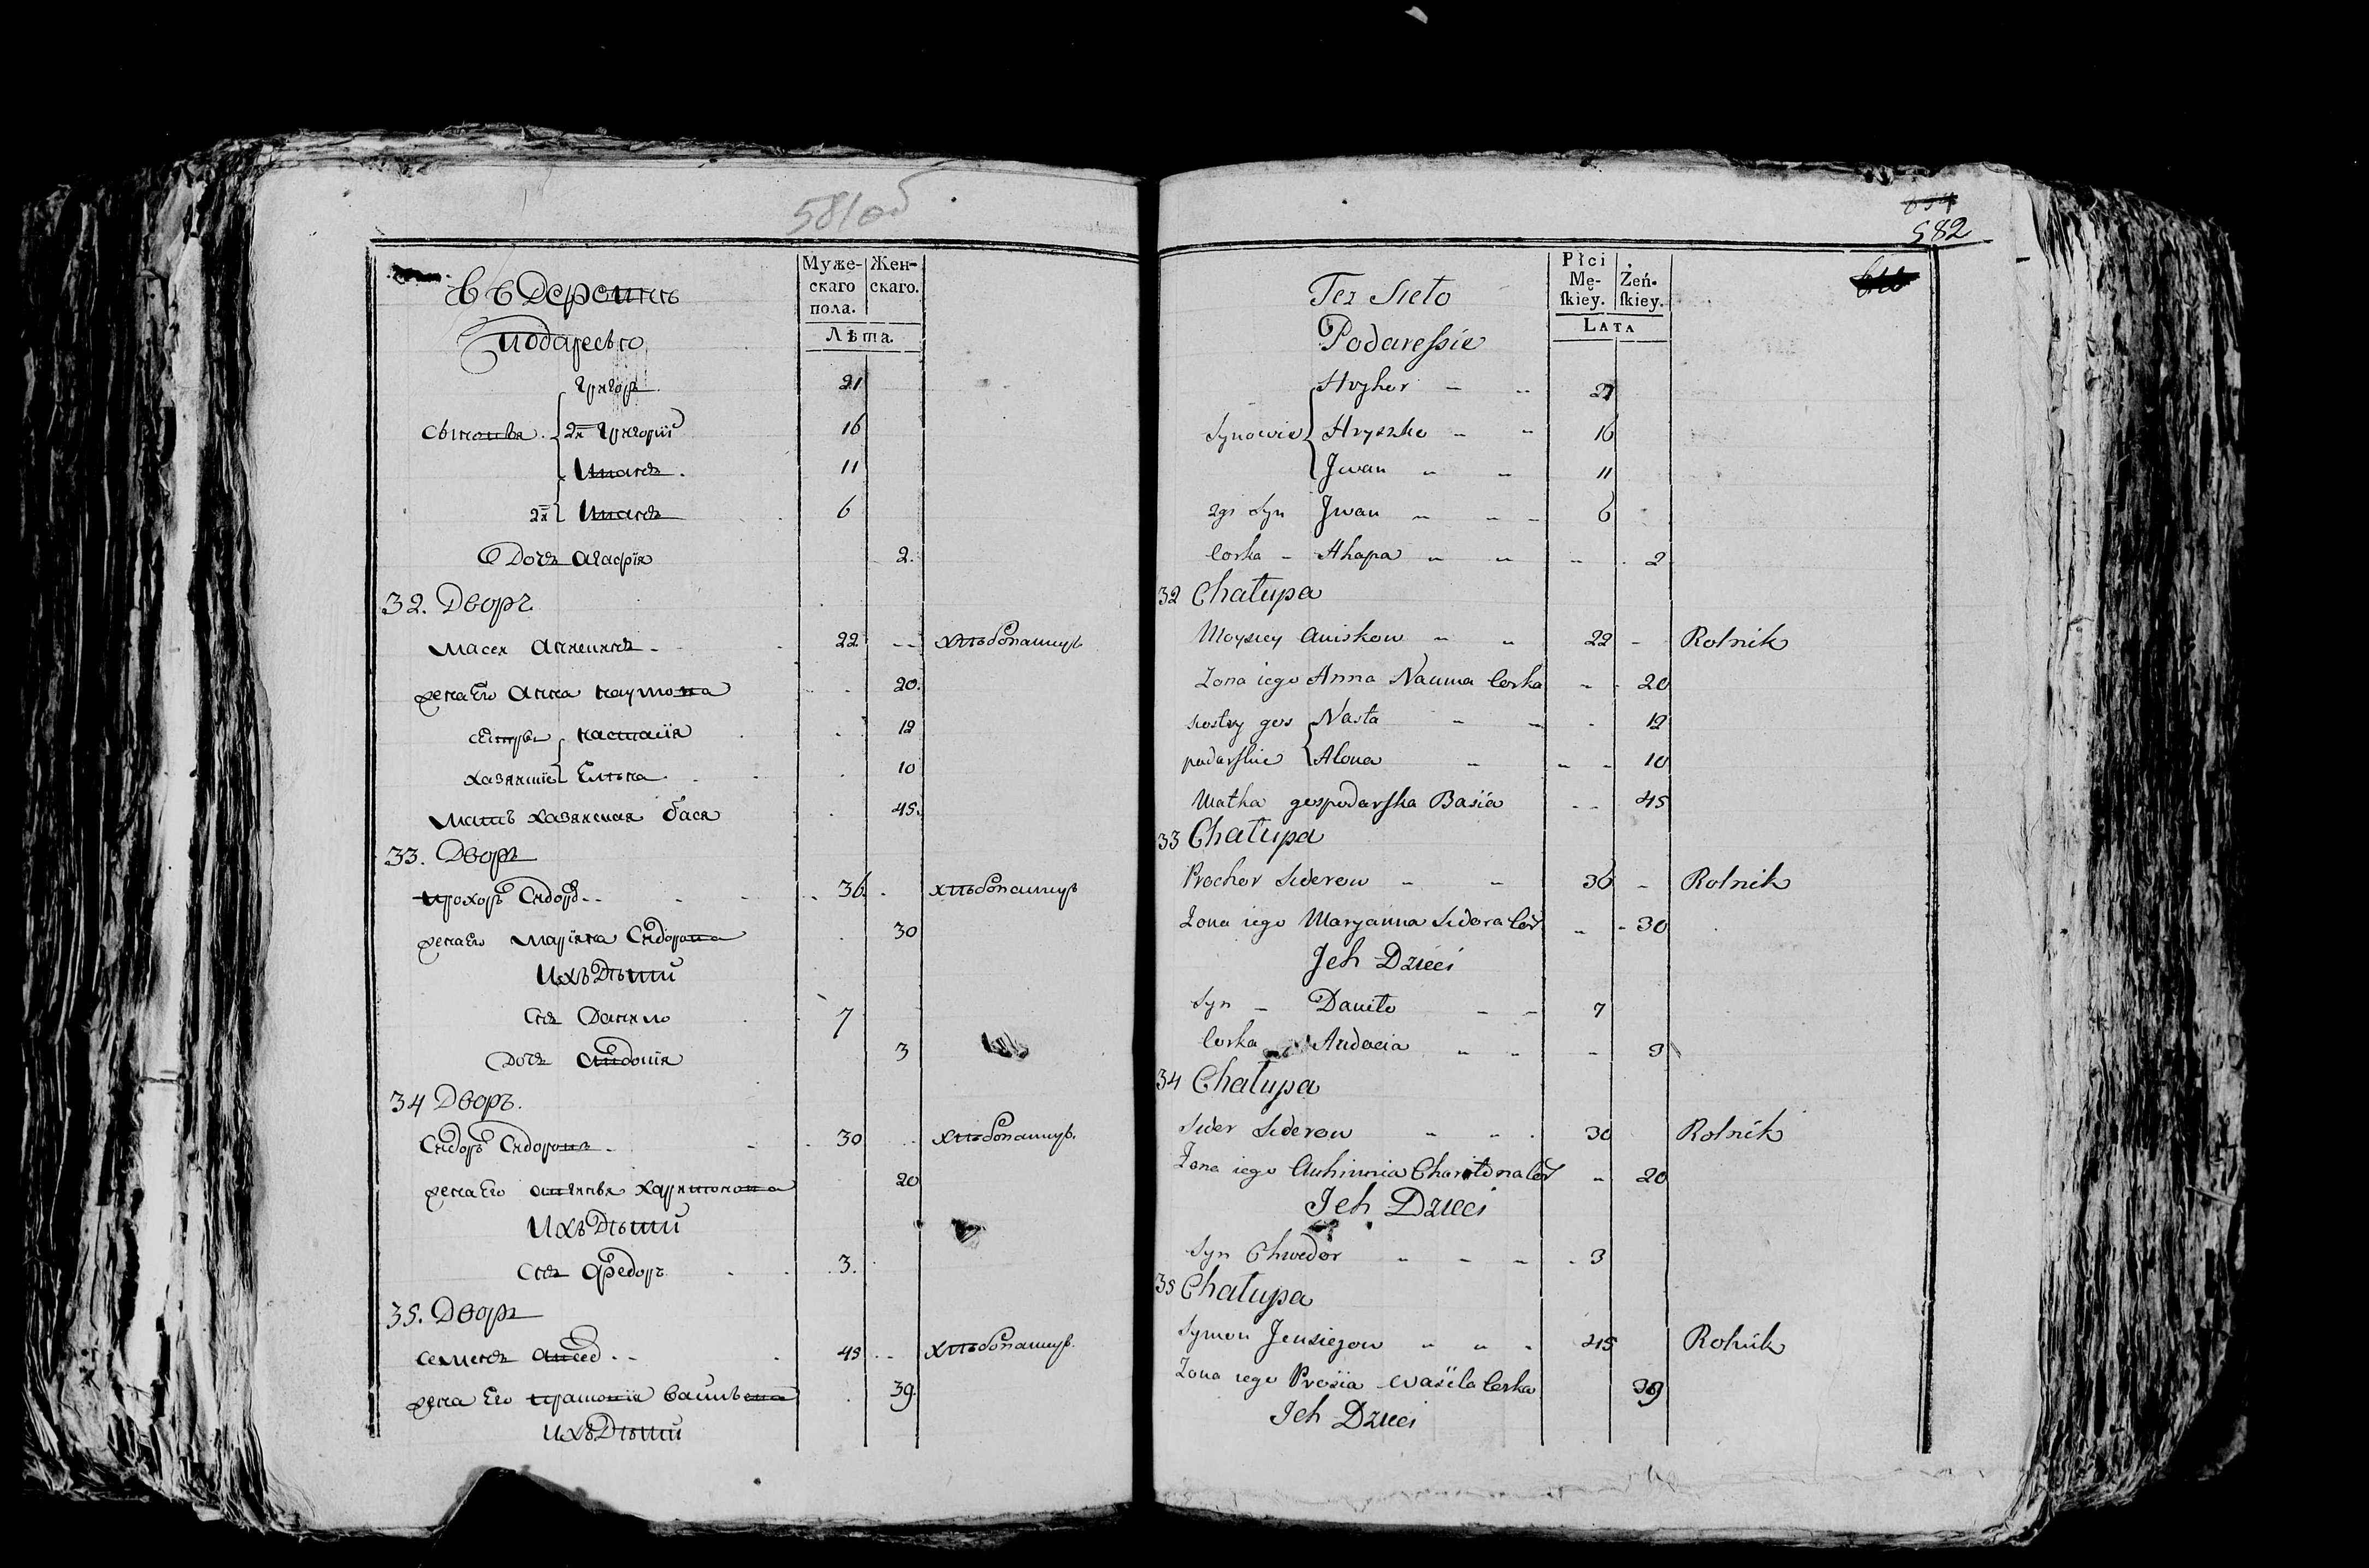 581об
Муже-
скаго
пола.
Жен-
скаго.
Лѣта.
въ деревнѣ
Подаресье
Григор. 21
Сыновья 2й Григорій 16
Иванъ. 11
2й Иванъ 6
Дочь Агафія 2.
32. Дворъ
22 -- хлѣбопашецъ
жена Его Анна Наумова 20.
сестры Настасія 12
хазяйскіе Елена 10
мать хазяйская бася 45.
33. Дворъ
Прохоръ Сидор. -- 36. хлѣбопашецъ
жена Его Маріяна Сидорова 30
Ихъ Дѣти
Сынъ Данило 7
Дочь 3
34 Дворъ.
Сидоръ Сидоровъ. 30 хлѣбопашецъ.
жена Его Харитонова 20
Ихъ Дѣти
Сынъ Федоръ 3.
35. Дворъ
Семенъ 45 -- хлѣбопашецъ.
жена Его Васильева 39.
Ихъ Дѣти
582
Płci
Mę-
ſkiey.
Żeń-
ſkiey.
LATA
Tez Sieło
Podareſsie
Hryhor 21
Synowie Hryszko 16
Jwan 11
2gi Syn Jwan 6
Corka - Ahapa 2
32 Chałupa
Moysiey Aniskow 22 - Rolnik
Zona iego Anna Nauma Corka 20
siostry gos Nasta 12
podarſkie Alona 10
Matka gospodarſka Basia 45
33 Chałupa
Prochor Siderow 36 - Rolnik
Zona iego Maryanna Sidora Cor 30
Jch Dzieci
Syn - Daniło 7
Corka Audocia 3
34 Chałupa
Sider Siderow 30 Rolnik
Zona iego Auhinnia Charitona Cor 20
Jch Dzieci
Syn Chwedor 3
35 Chałupa
Symon Jeusiejow 45 Rolnik
Zona iego Prosia Wasila Corka 39
Jch Dzieci